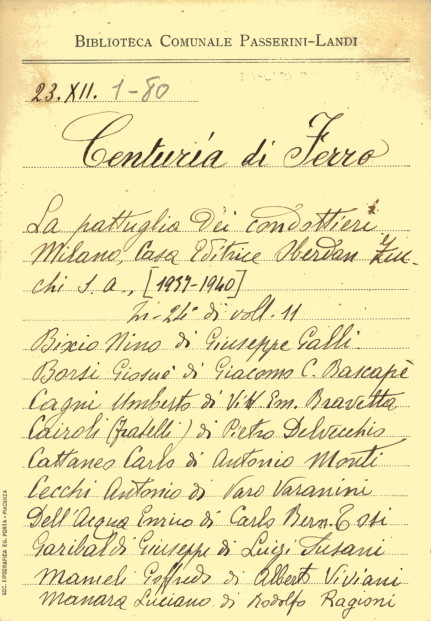 BIBLIOTECA COMUNALE PASSERINI-LANDI
23. XII. 1-80
Centuria di Ferro
La pattuglia dei condottieri
Milano, Casa Editrice Oberdan Zuc-
chi S. A., [1937-1940]
in-24° di voll. 11
Bixio Nino di Giuseppe Galli
Borsi Giosuè di Giacomo C. Bascapè
Cagni Umberto di Vitt. Em. Bravetta
Cairoli (fratelli) di Pietro Delvecchio
Cattaneo Carlo di Antonio Monti
Cecchi Antonio di Varo Varanini
Dell'Acqua Enrico di Carlo Bern. Ossi
Garibaldi Giuseppe di Luigi Susani
Mameli Goffredo di Alberto Viviani
Manara Luciano di Rodolfo Ragioni
SOC. TIPOGRAFICA ED. PORTA - PIACENZA